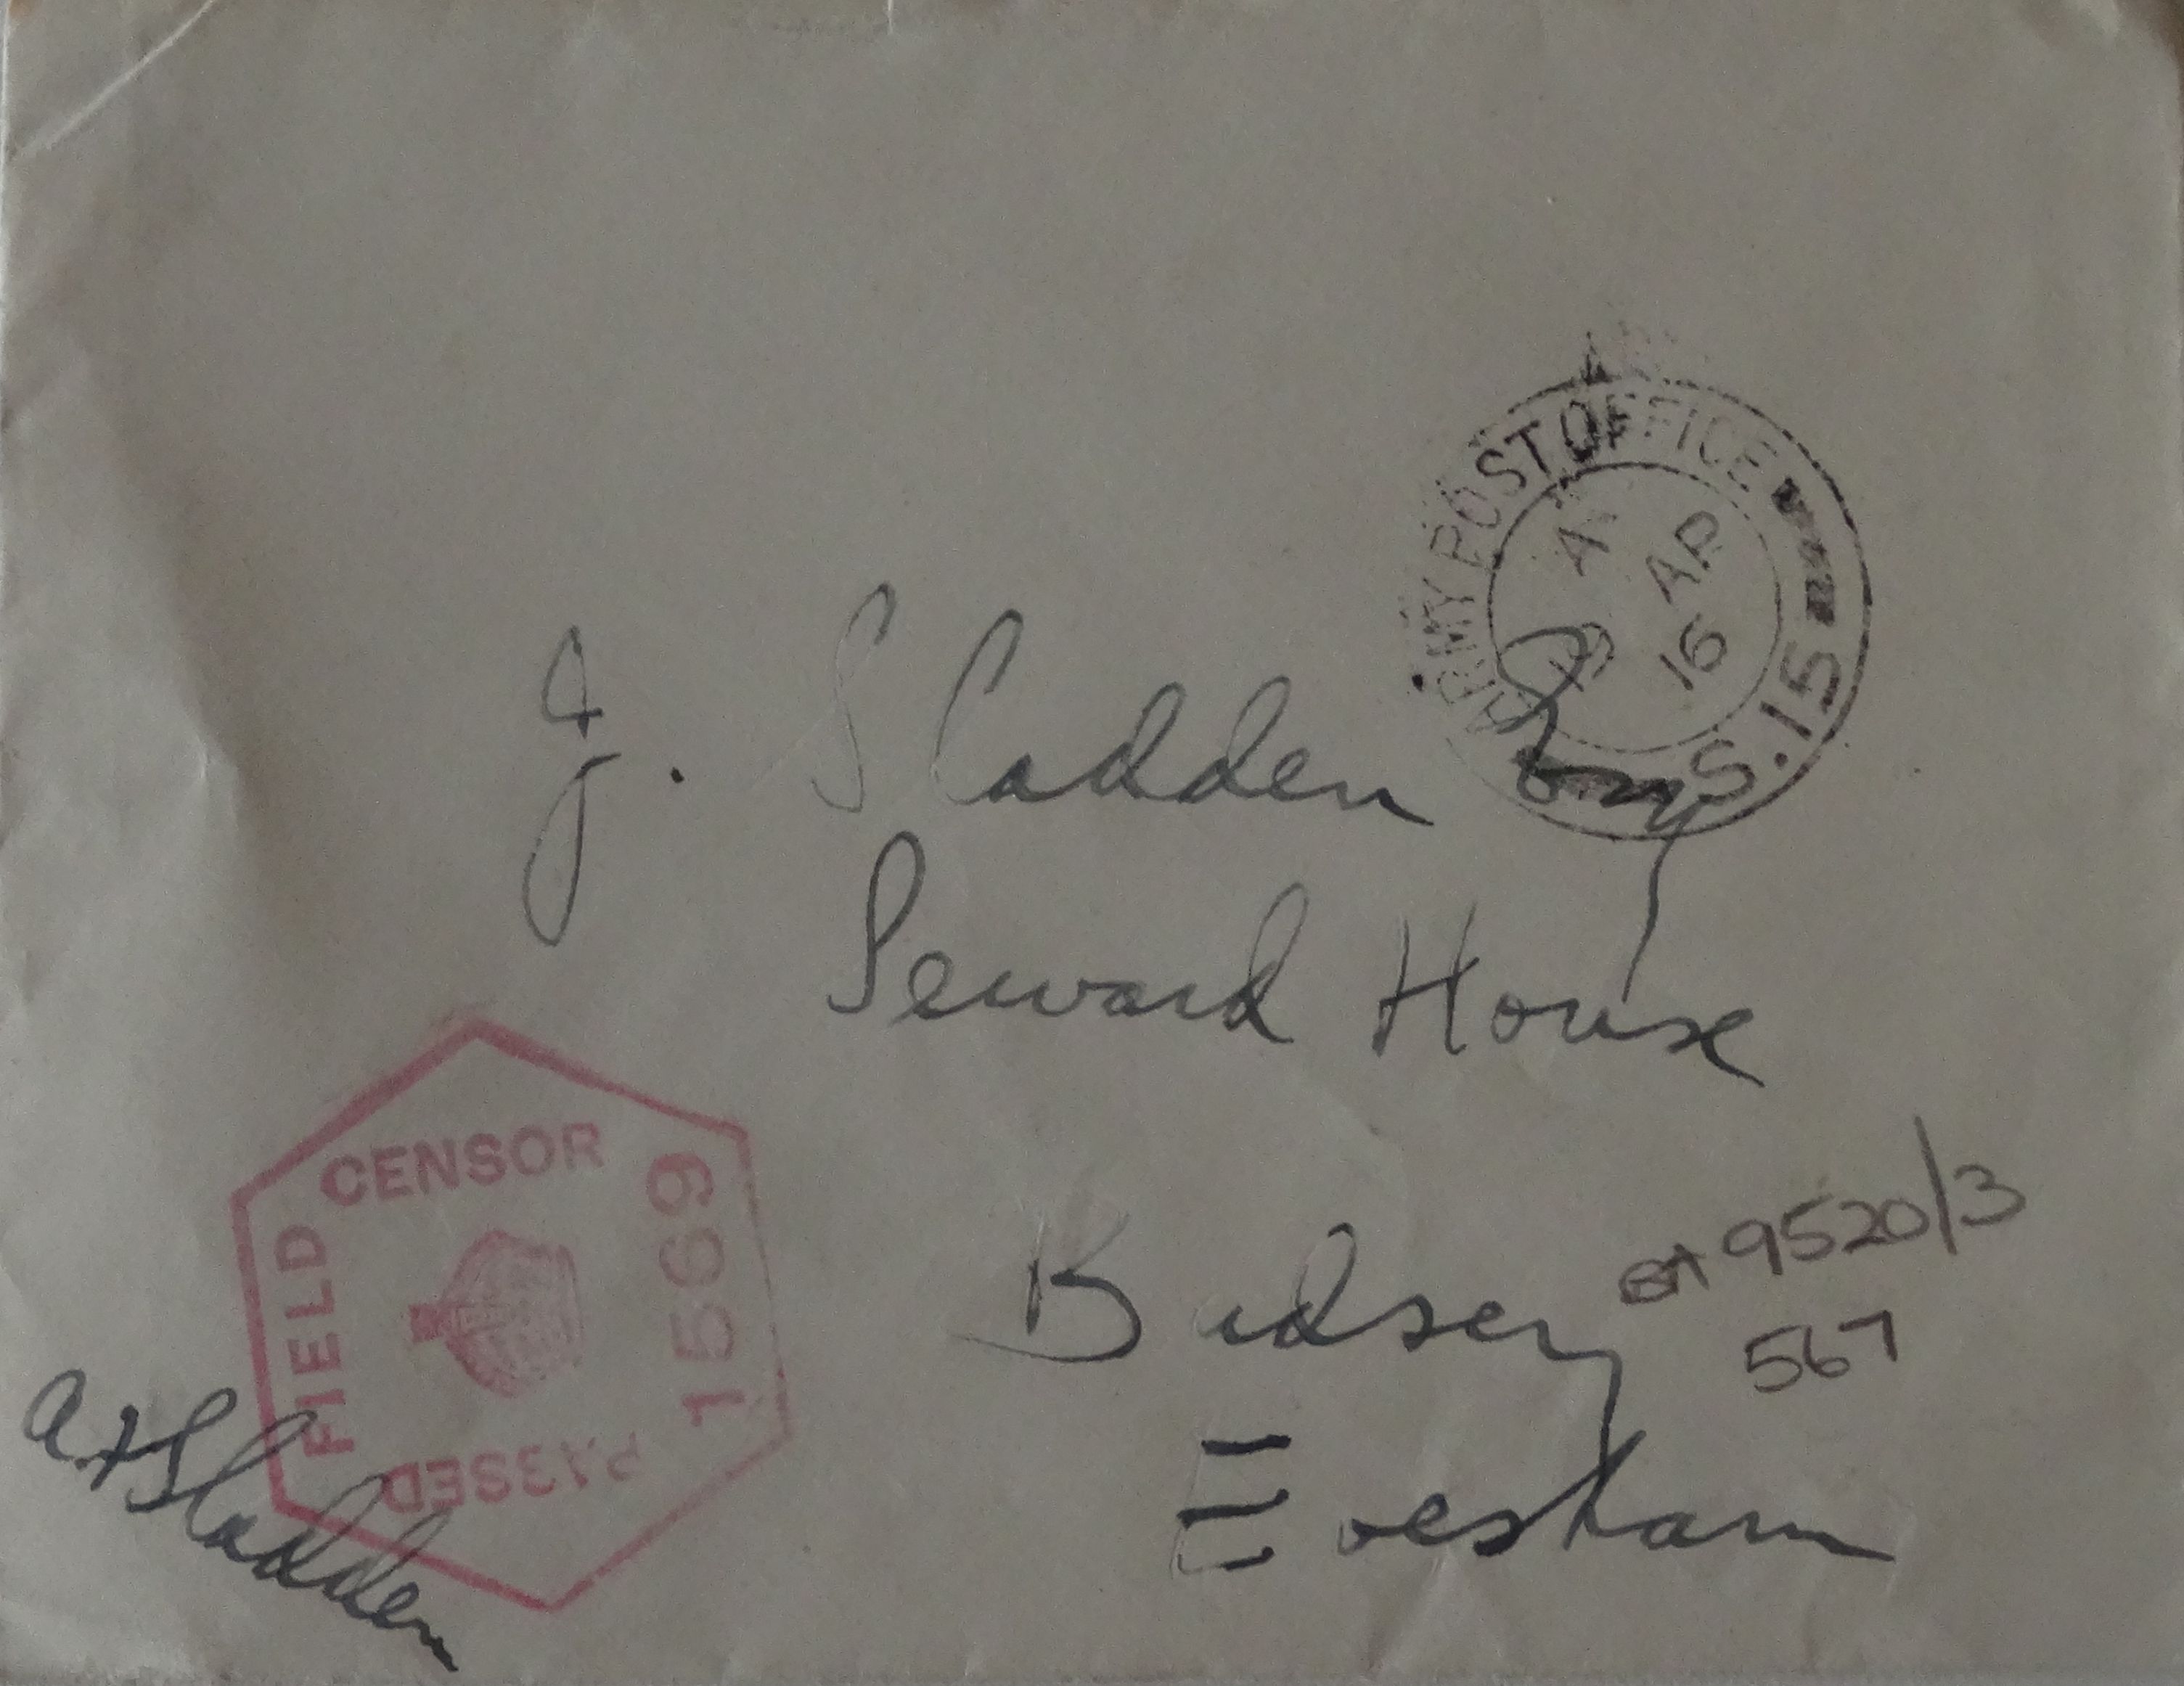 ARMY POST OFFICE
A
AP
16
S.15
J. Sladden Esq
Seward House
Badsey
Evesham
9520/3
567
FIELD
CENSOR
1569
PASSED
A F Sladden